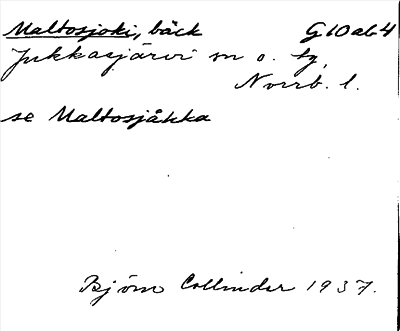 Maltosjoki, bäck G10ab4
Jukkasjärvi sn o. tg,
Norrb. l.
se Maltosjåkka
Björn Collinder 1937.